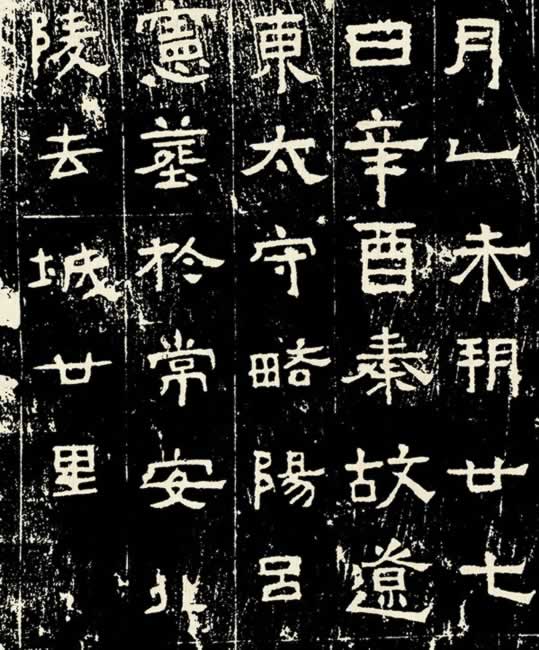 月乙未朔廿七
日辛酉秦故遼
東太守略陽呂
憲塟於常安北
陵去城廿里